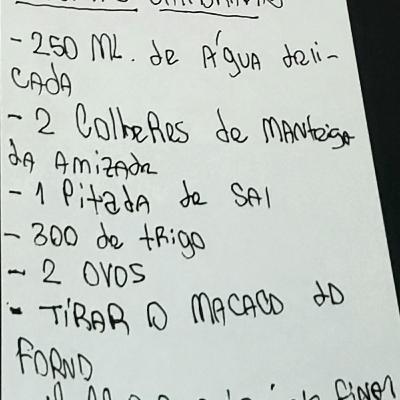 - 250 ML. de ÁGUA deli-
CADA
- 2 ColheRes de MANteiga
dA AmizAde
- 1 PitadA de SAl
- 300 de tRigo
- 2 OVOS
- TIRAR O MACACO dO
FORNO